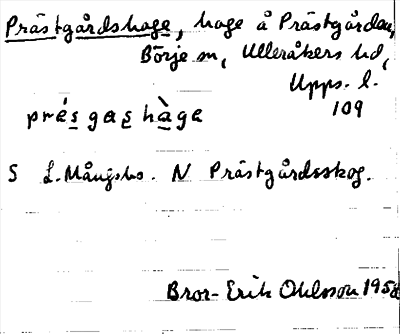 Prästgårdshage, hage å Prästgården,
Börje sn, Ulleråkers hd,
Upps. l.
109
prés gas hàga
S L. Mångsbo. N Prästgårdsskog.
Bror-Erik Ohlsson 1958